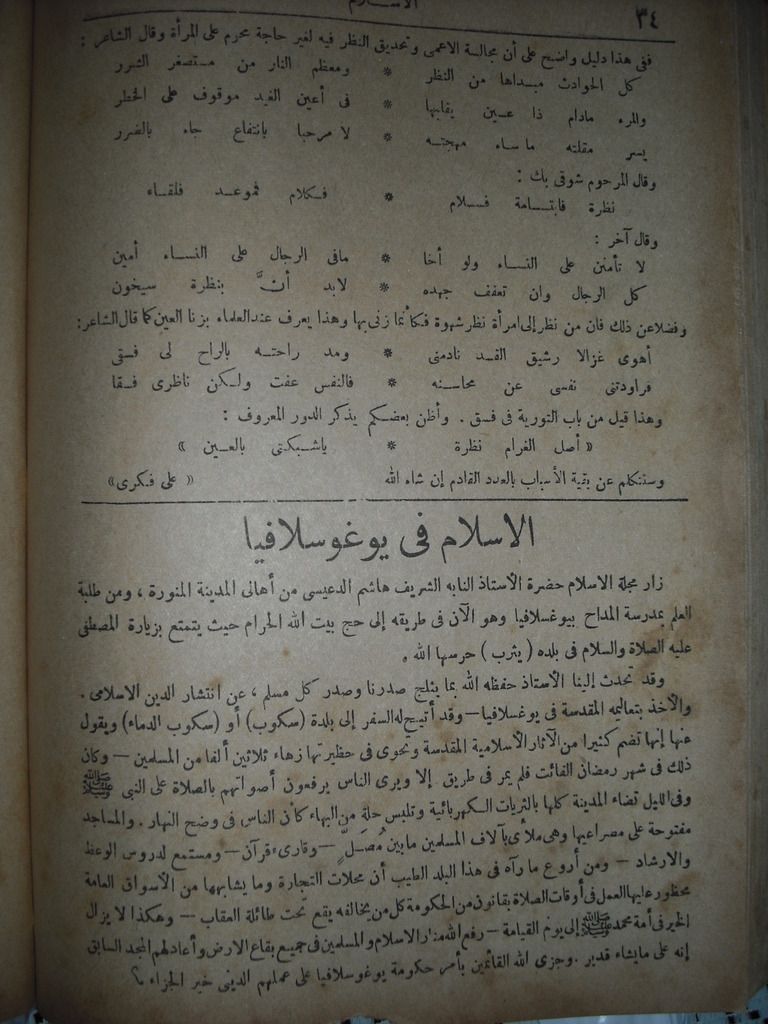 ٣٤
الاسلام
ففى هذا دليل واضح على أن مجالسة الاعمى وتحديق النظر فيه لغير حاجة محرم على المرأة وقال الشاعر :
كل الحوادث مبداها من النظر * ومعظم النار من مستصغر الشرر
والمرء مادام ذا عين يقلبها * فى أعين الغيد موقوف على الخطر
يسر مقلته ما ساء مهجته * لا مرحبا بانتفاع جاء بالضرر
وقال المرحوم شوقى بك :
نظرة فابتسامة فسلام * فكلام فموعد فلقاء
وقال آخر :
لا تأمنن على النساء ولو أخا * مافى الرجال على النساء أمين
كل الرجال وان تعفف جهده * لابد أنَّ بنظرة سيخون
وفضلا عن ذلك فان من نظر إلى امرأة نظر شهوة فكأنما زنى بها وهذا يعرف عند العلماء بزنا العين كما قال الشاعر :
أهوى غزالا رشيق القد نادمنى * ومد راحته بالراح لى فسقى
فراودتنى نفسى عن محاسنه * فالنفس عفت ولكن ناظرى فسقا
وهذا قيل من باب التورية فى فسق . وأظن بعضكم يذكر الدور المعروف :
« أصل الغرام نظرة * ياشبكتى بالعين »
وستتكلم عن بقية الأسباب بالعدد القادم إن شاء الله « على فكرى »
الاسلام فى يوغوسلافيا
زار مجلة الاسلام حضرة الأستاذ النابه الشريف هاشم الدعيسى من أهالى المدينة المنورة ، ومن طلبة
العلم بمدرسة المداح بيوغسلافيا وهو الآن فى طريقه إلى حج بيت الله الحرام حيث يتمتع بزيارة المصطفى
عليه الصلاة والسلام فى بلده ( يثرب ) حرسها الله .
وقد تحدث إلينا الأستاذ حفظه الله بما يثلج صدرنا وصدر كل مسلم ، عن انتشار الدين الاسلامى .
والأخذ بتعاليمه المقدسة فى يوغسلافيا — وقد أتيح له السفر إلى بلدة (سكوب) أو (سكوب الدماء) ويقول
عنها إنها تضم كثيرا من الآثار الأسلامية المقدسة وتحوى فى حظيرتها زهاء ثلاثين ألفا من المسلمين — وكان
ذلك فى شهر رمضان الفائت فلم يمر فى طريق إلا ويرى الناس يرفعون أصواتهم بالصلاة على النبى ﷺ
وفى الليل تضاء المدينة كلها بالثريات الكهربائية وتلبس حلة من البهاء كأن الناس فى وضح النهار . والمساجد
مفتوحة على مصراعيها وهى ملأى بآلاف المسلمين مابين مُصَلٍّ — وقارىء قرآن — ومستمع لدروس الوعظ
والارشاد — ومن أروع ما رآه فى هذا البلد الطيب أن محلات التجارة وما يشابهها من الأسواق العامة
محظور عليها العمل فى أوقات الصلاة بقانون من الحكومة كل من يخالفه يقع تحت طائلة العقاب — وهكذا لا يزال
الخير فى أمة محمد ﷺ إلى يوم القيامة — رفع الله منار الاسلام و المسلمين فى جميع بقاع الارض وأعاد لهم المجد السابق
إنه على مايشاء قدير . وجزى الله القائمين بأمر حكومة يوغوسلافيا على عملهم الدينى خير الجزاء